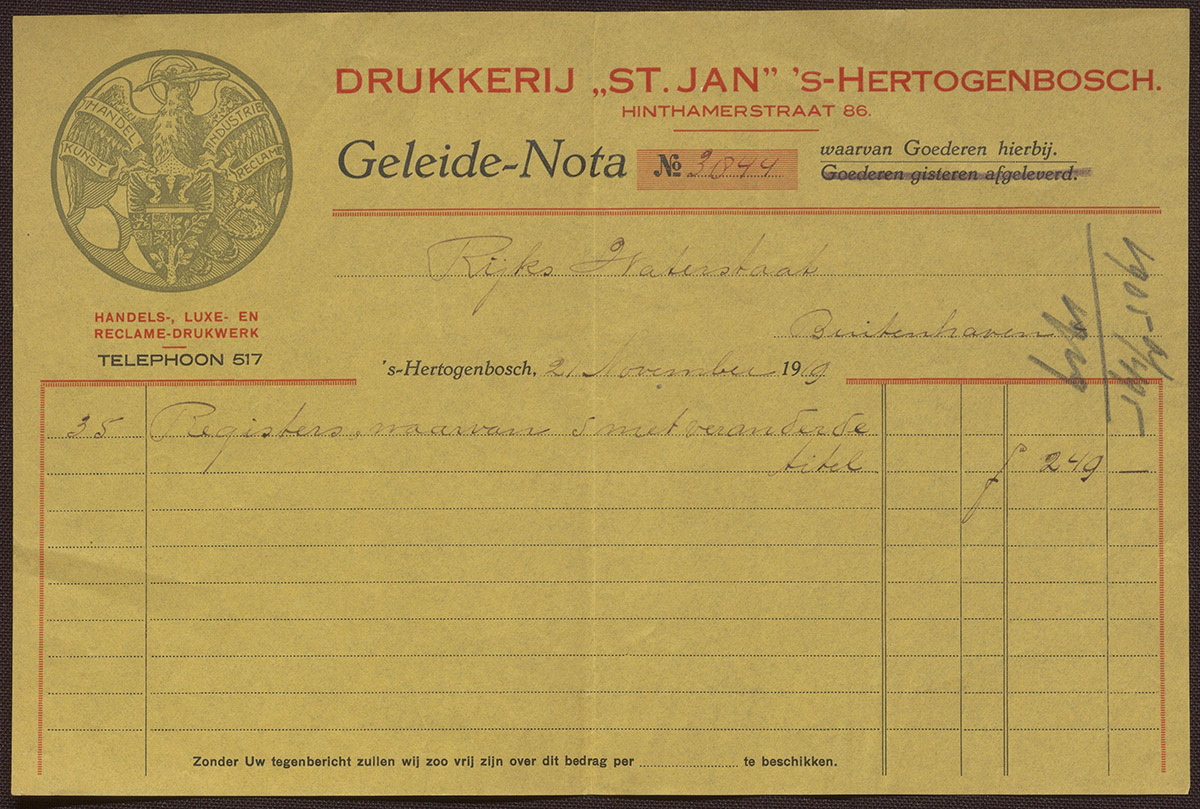 HANDEL
INDUSTRIE
KUNST
RECLAME
DRUKKERIJ „ST. JAN” 's-HERTOGENBOSCH.
HINTHAMERSTRAAT 86.
Geleide-Nota № 3844
waarvan Goederen hierbij.
Goederen gisteren afgeleverd.
Rijks Waterstaat
Buitenhaven
HANDELS-, LUXE- EN
RECLAME-DRUKWERK
TELEPHOON 517
's-Hertogenbosch, 21 November 1919
35 Registers, waarvan 5 met veranderde
titel f 249 —
Zonder Uw tegenbericht zullen wij zoo vrij zijn over dit bedrag per ............ te beschikken.